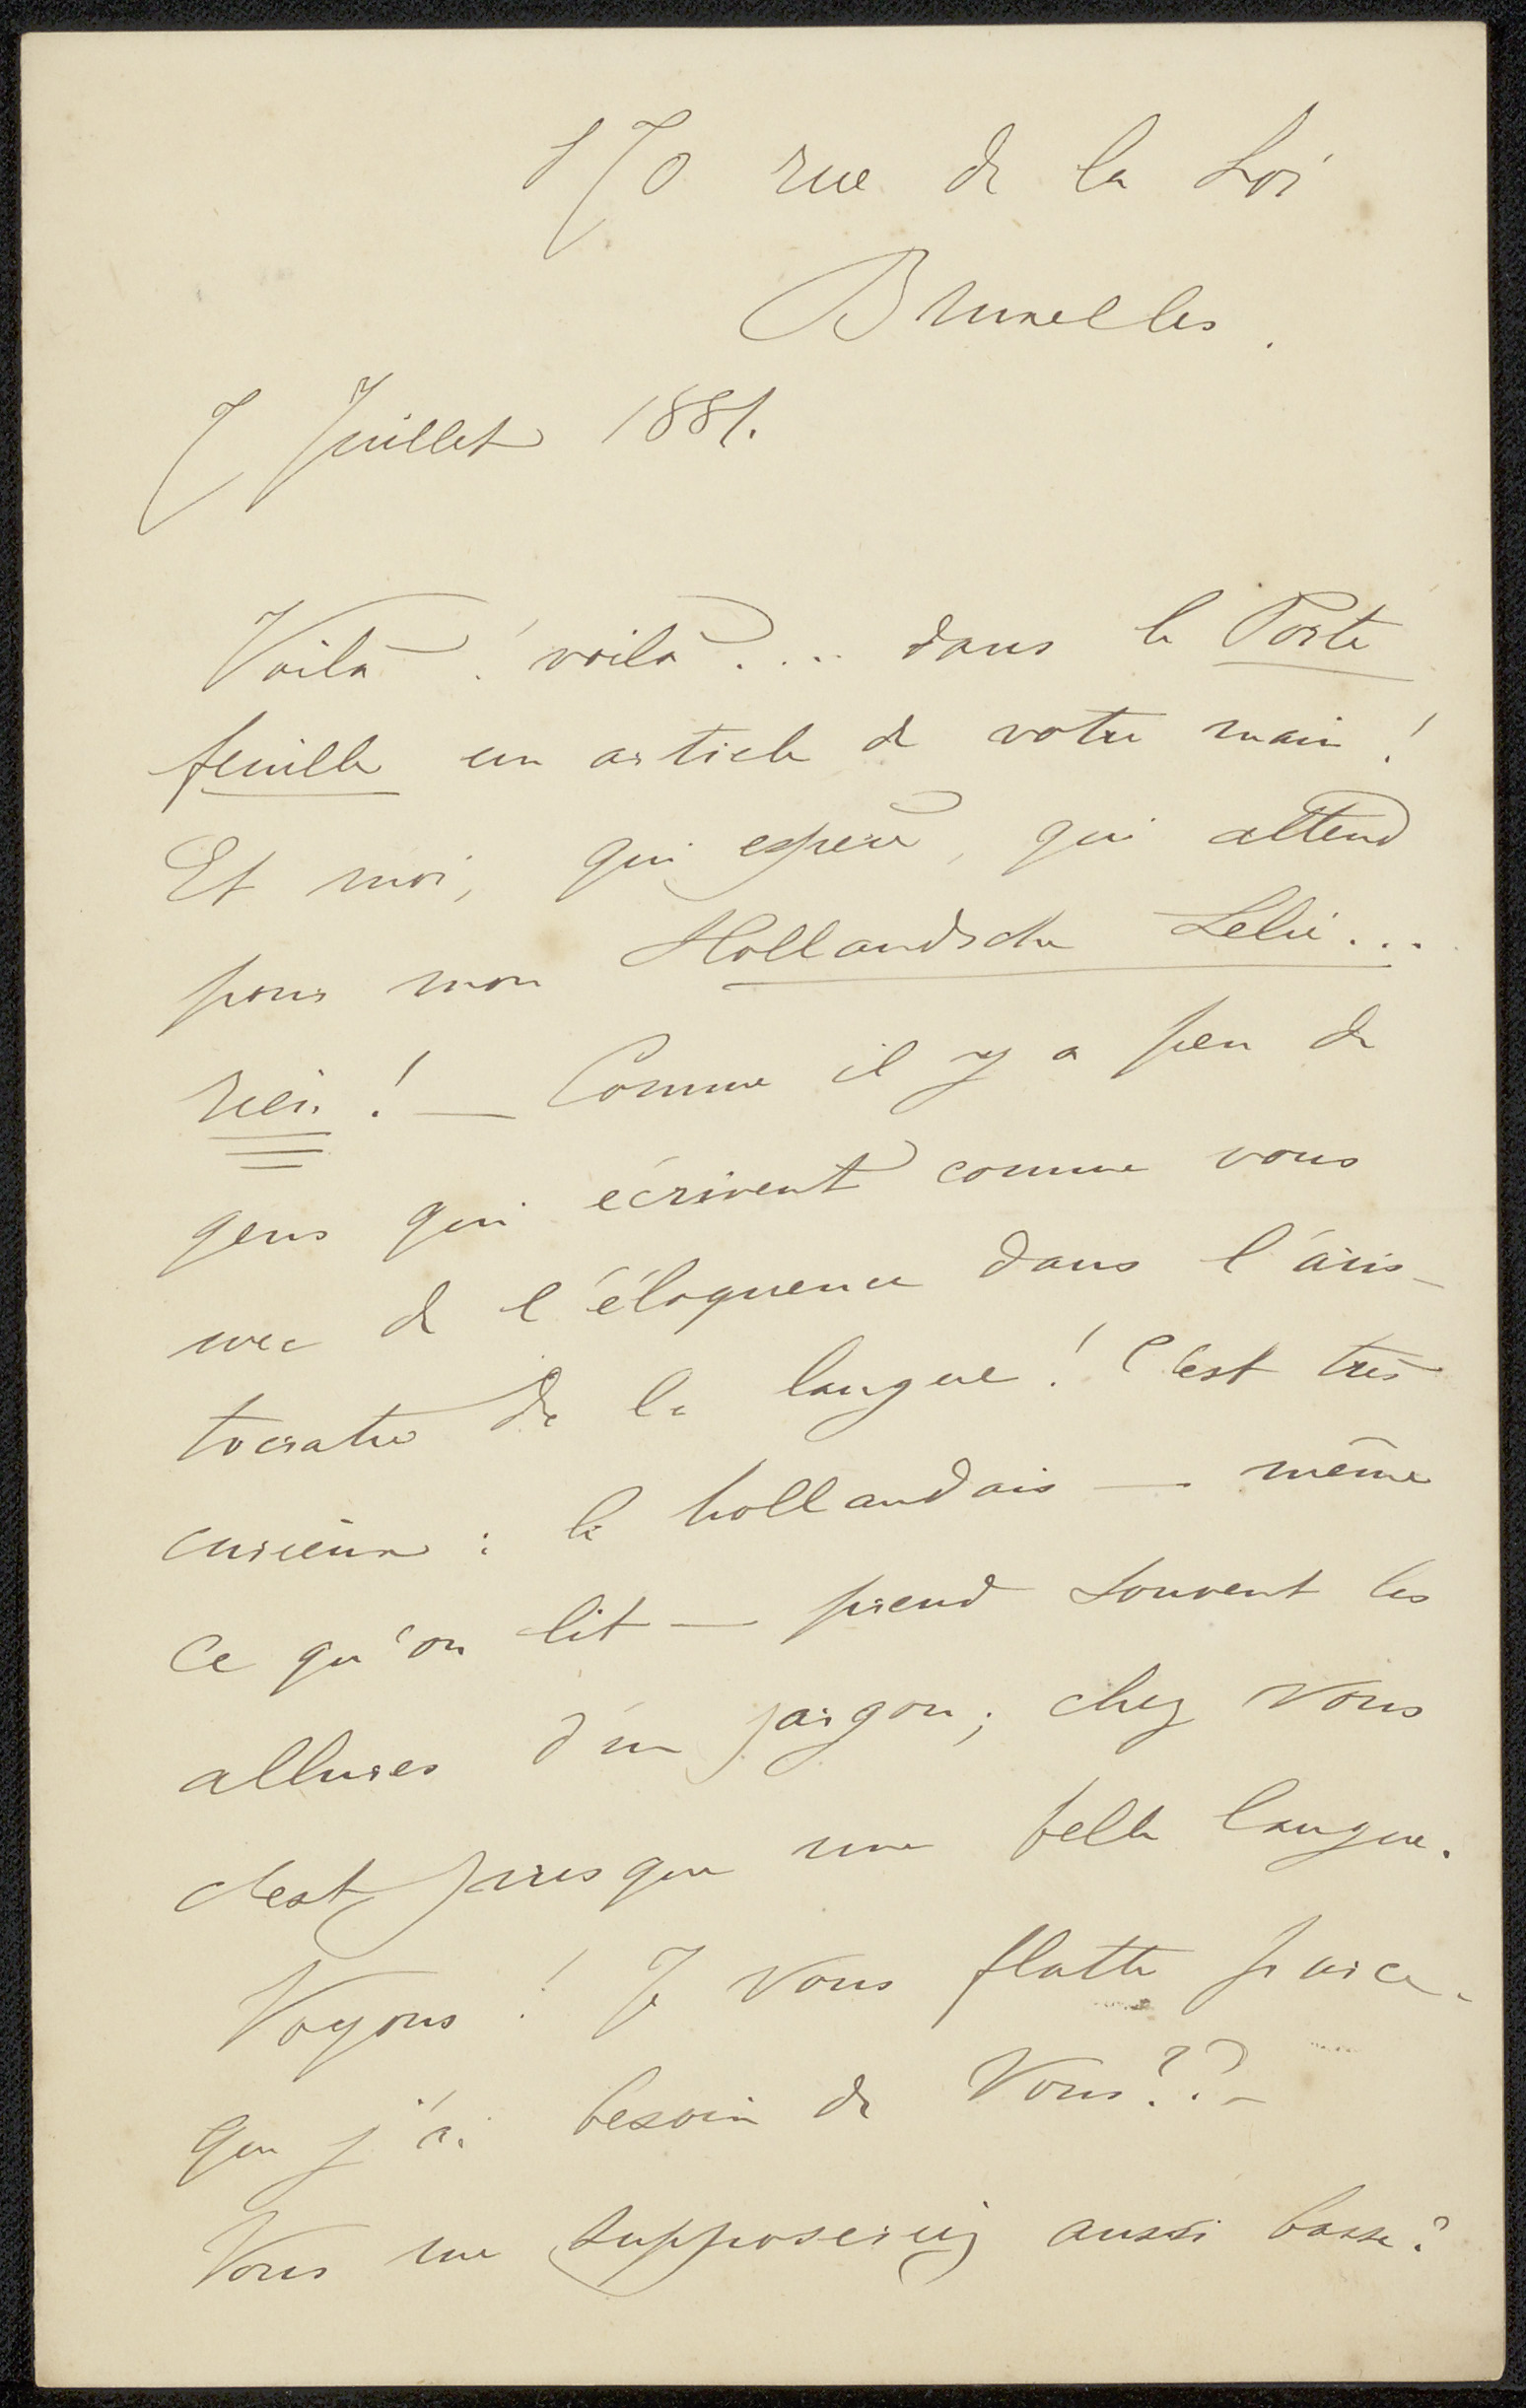 170 rue de la Loi
Bruxelles.
7 Juillet 1881.
Voilà! voilà.... dans le Porte
feuille un article de votre main!
Et moi, qui espère, qui attend
pour mon Hollandsche Lelie...
rien! — Comme il y a peu de
gens qui écrivent comme vous
avec de l'éloquence dans l'aris-
tocratie de la langue! C'est très
curieux: le hollandais — même
ce qu'on lit — prend souvent les
allures d'un jargon; chez vous
c'est presque une belle langue.
Voyons! Je vous flatte parce-
que j'ai besoin de Vous?? —
Vous me supposeriez aussi basse?